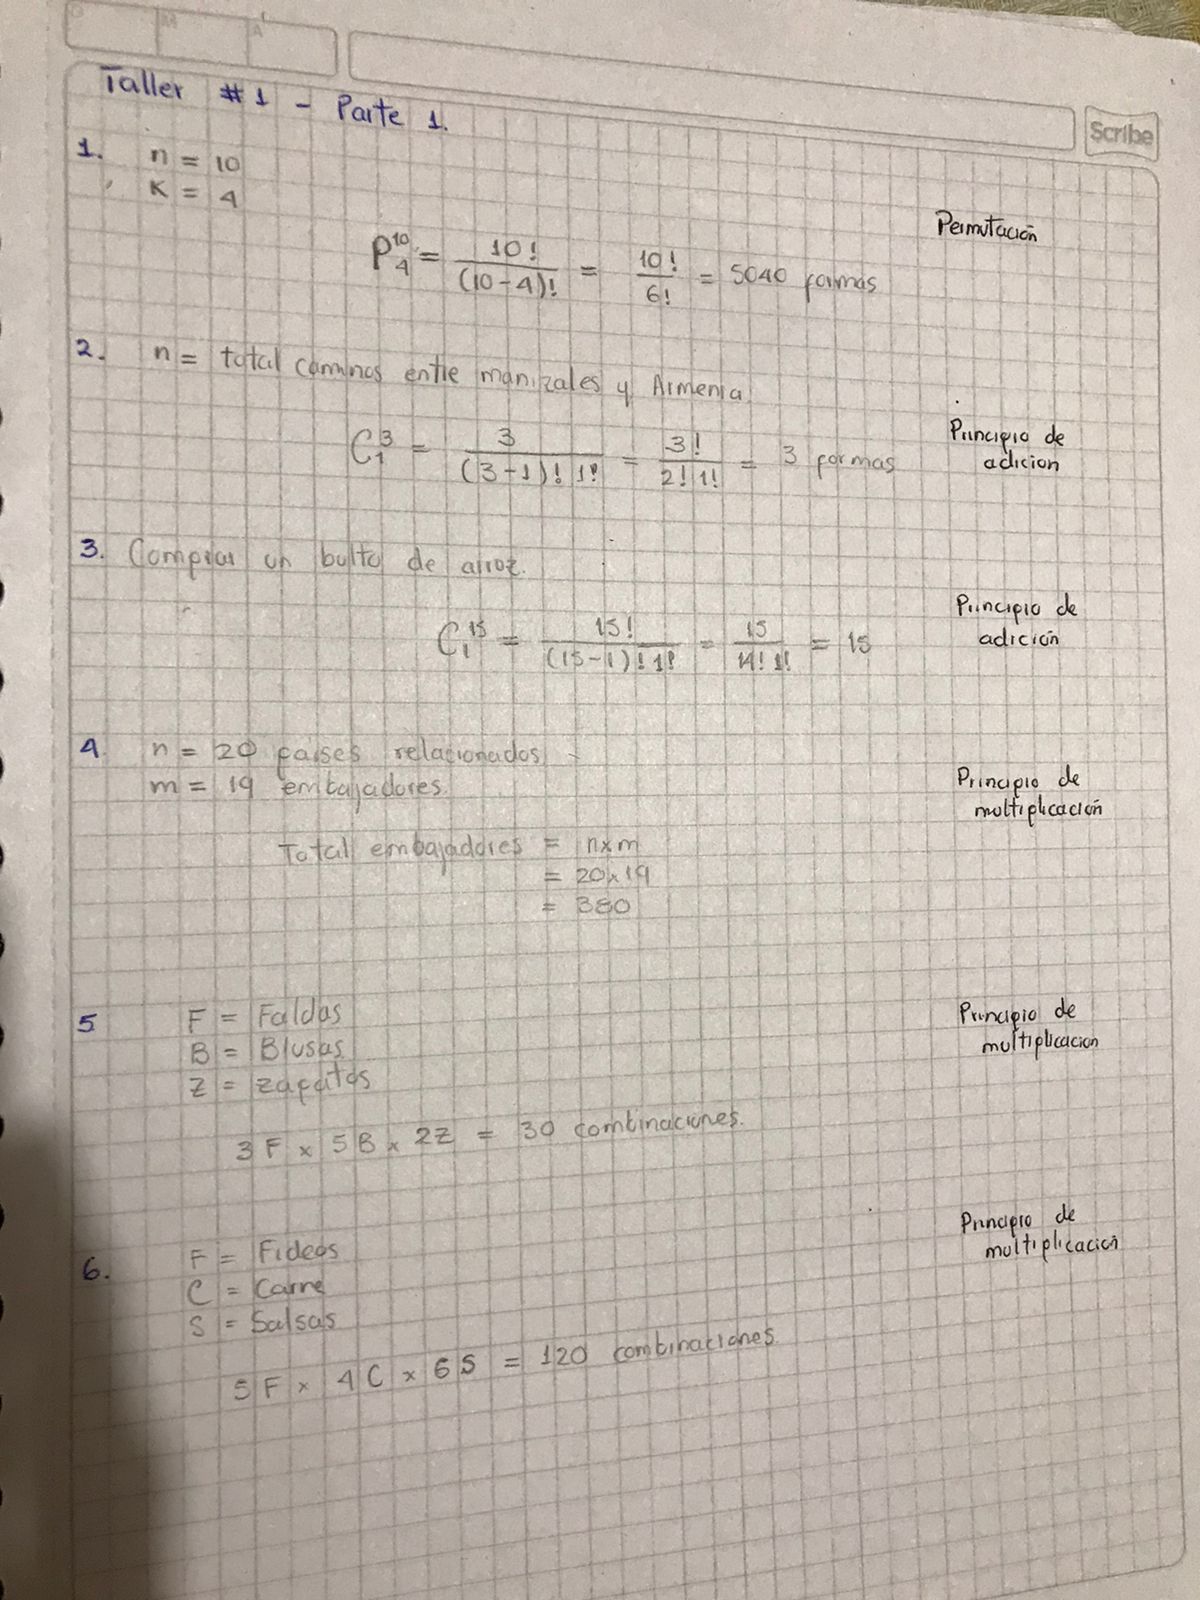 D M A
Taller #1 - Parte 1.
Scribe
1. n = 10
K = 4
Permutación
P₄¹⁰ = 10! / (10-4)! = 10! / 6! = 5040 formas
2. n = total caminos entre manizales y Armenia
Principio de
adicion
C₁³ = 3 / (3-1)! 1! = 3! / 2! 1! = 3 formas
3. Comprar un bulto de arroz.
Principio de
adición
C₁¹⁵ = 15! / (15-1)! 1! = 15 / 14! 1! = 15
4. n = 20 paises relacionados
m = 19 embajadores.
Principio de
multiplicación
Total embajadores = nxm
= 20x19
= 380
5 F = Faldas
B = Blusas
Z = zapatos
Principio de
multiplicacion
3F x 5B x 2Z = 30 combinaciones.
6. F = Fideos
C = Carne
S = Salsas
Principio de
multiplicación
5F x 4C x 6S = 120 combinaciones